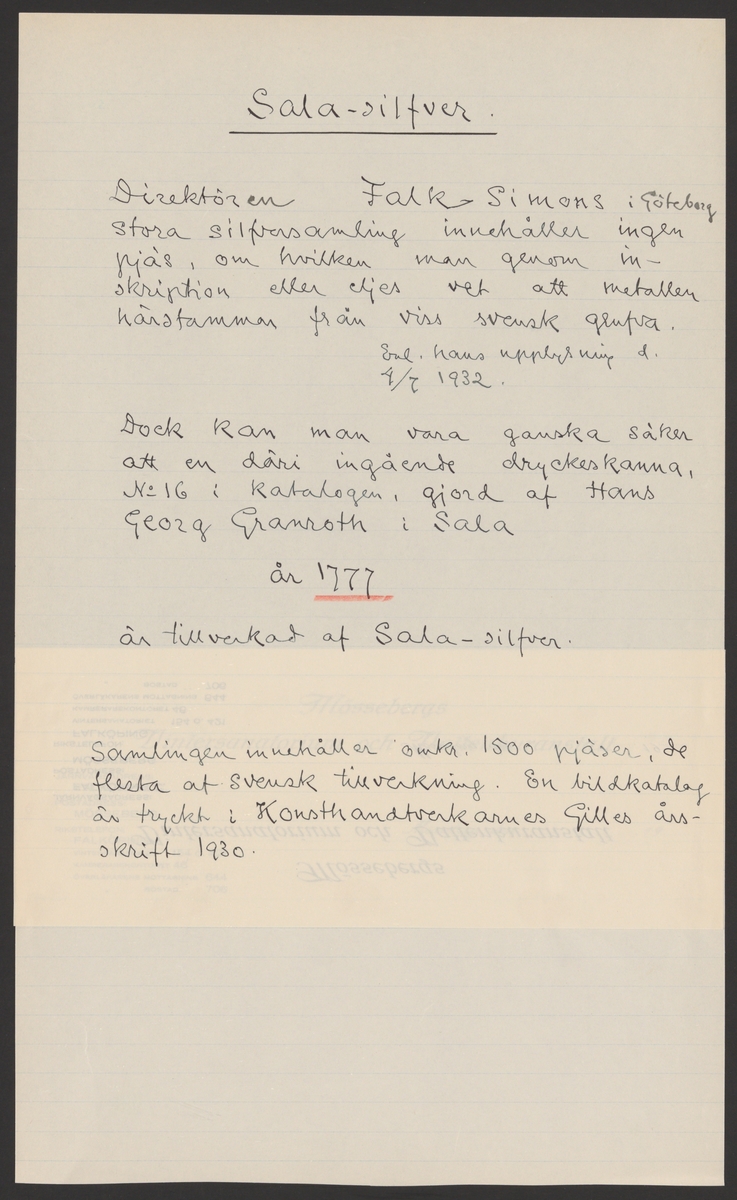 Sala-silfver.
Direktören Falk Simons i Göteborg
stora silfversamling innehåller ingen
pjäs, om hvilken man genom in-
skription eller eljes vet att metallen
härstammar från viss svensk grufva.
Enl. hans upplysning d.
4/7 1932.
Dock kan man vara ganska säker
att en däri ingående dryckeskanna,
No 16 i katalogen, gjord af Hans
Georg Granroth i Sala
år 1777
är tillverkad af Sala-silfver.
Samlingen innehåller omkr. 1500 pjäser, de
flesta af svensk tillverkning. En bildkatalog
är tryckt i Konsthandtverkarnes Gilles års-
skrift 1930.
Mössebergs
Vintersanatorium och Vattenkuranstalt